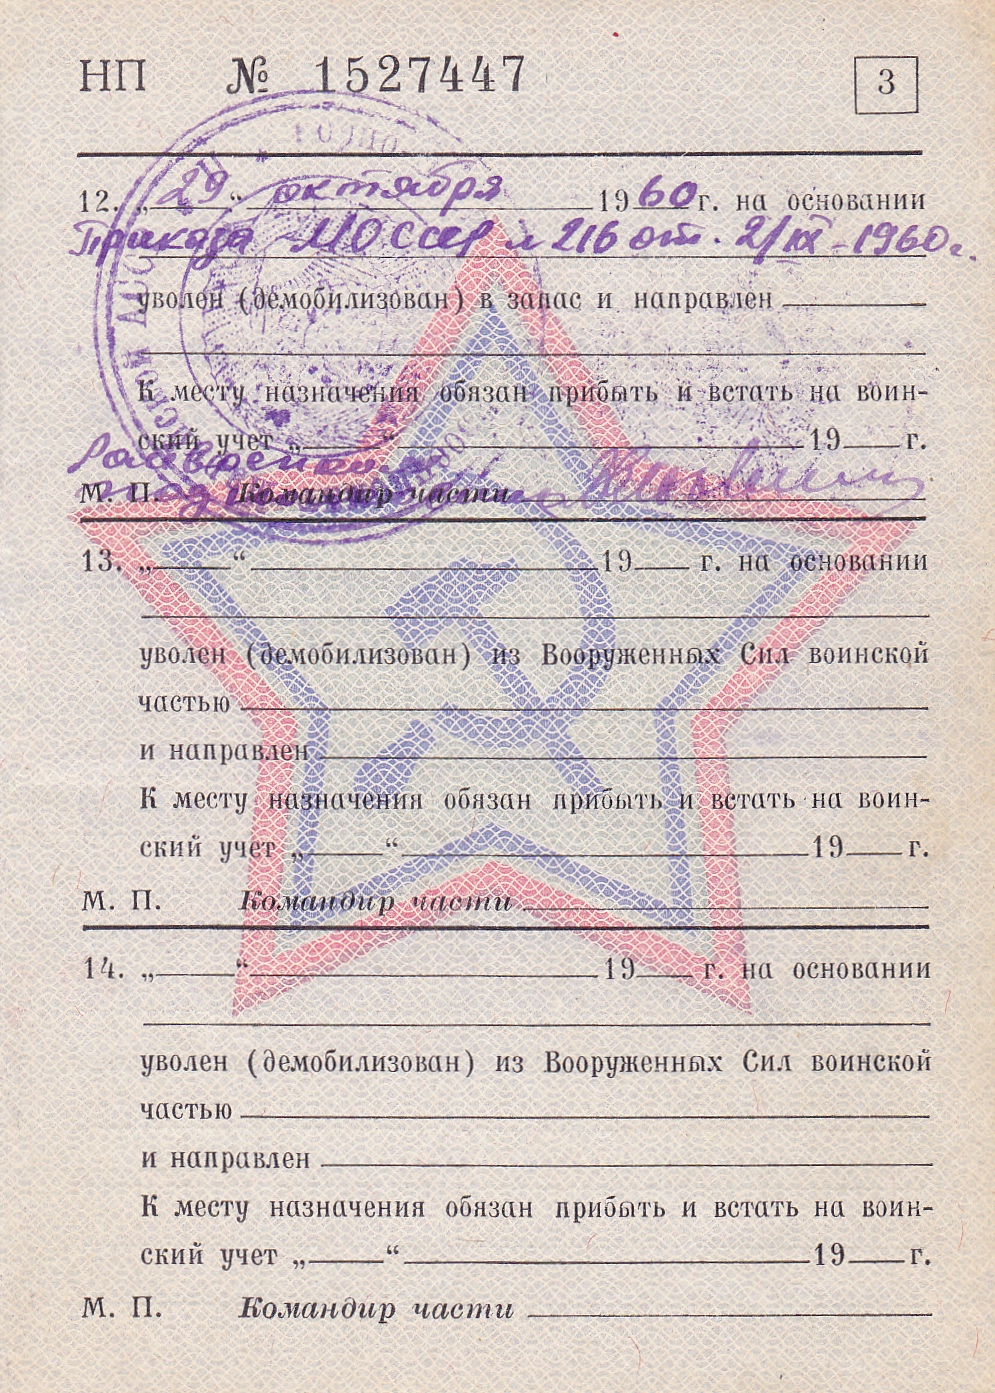 НП № 1527447 3
12. „29“ октября 1960 г. на основании
Приказа МО СССР № 216 от. 2/IX-1960г.
уволен (демобилизован) в запас и направлен
К месту назначения обязан прибыть и встать на воин-
ский учет „ “ 19 г.
М. П. Командир части
13. „ “ 19 г. на основании
уволен (демобилизован) из Вооруженных Сил воинской
частью
и направлен
К месту назначения обязан прибыть и встать на воин-
ский учет „ “ 19 г.
М. П. Командир части
14. „ “ 19 г. на основании
уволен (демобилизован) из Вооруженных Сил воинской
частью
и направлен
К месту назначения обязан прибыть и встать на воин-
ский учет „ “ 19 г.
М. П. Командир части